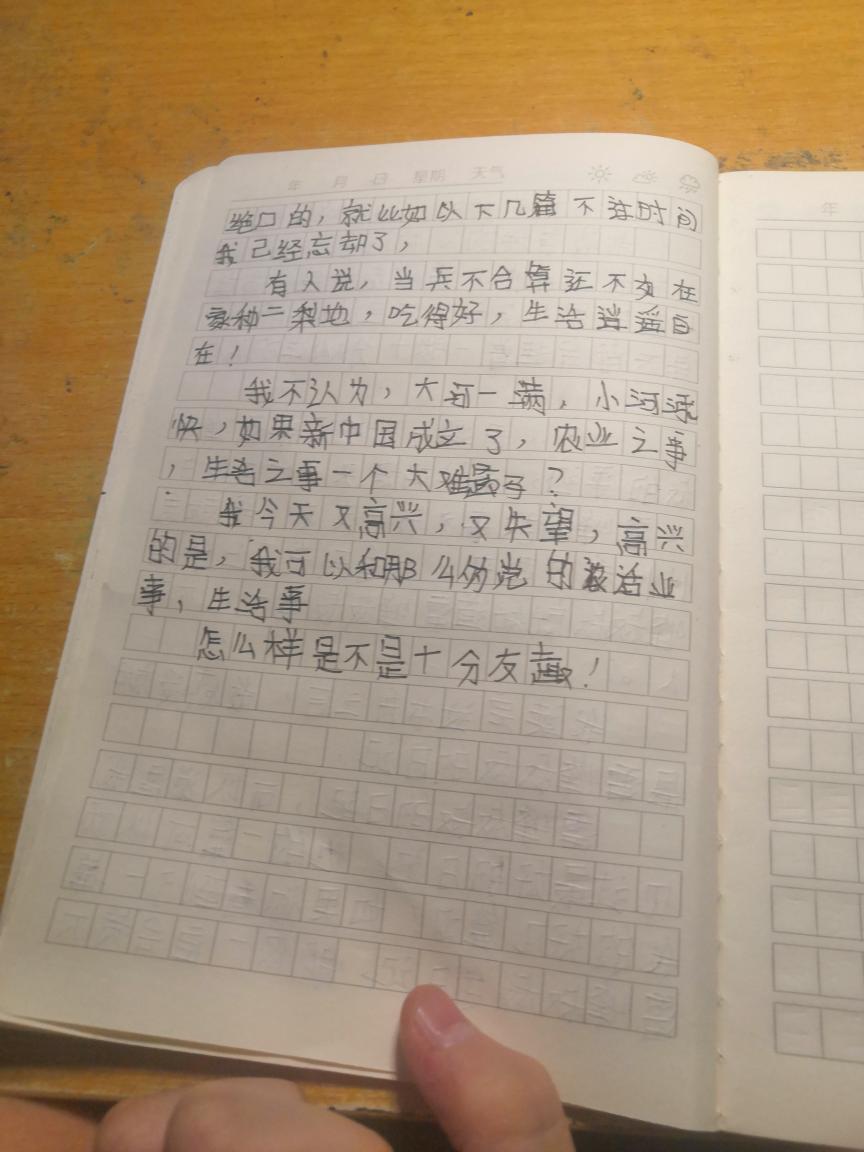 年 月 日 星期 天气
绝口的，就比如以下几篇 不注时间
我己经忘却了，
有人说，当兵不合算还不如在
家种二梨地，吃得好，生活逍遥自
在！
我不认为，大河一满，小河流
快，如果新中国成立了，农业之事
，生活之事一个大难题子？
我今天又高兴，又失望，高兴
的是，我可以和那么伪党的 活业
事，生活事
怎么样是不是十分友趣！
年